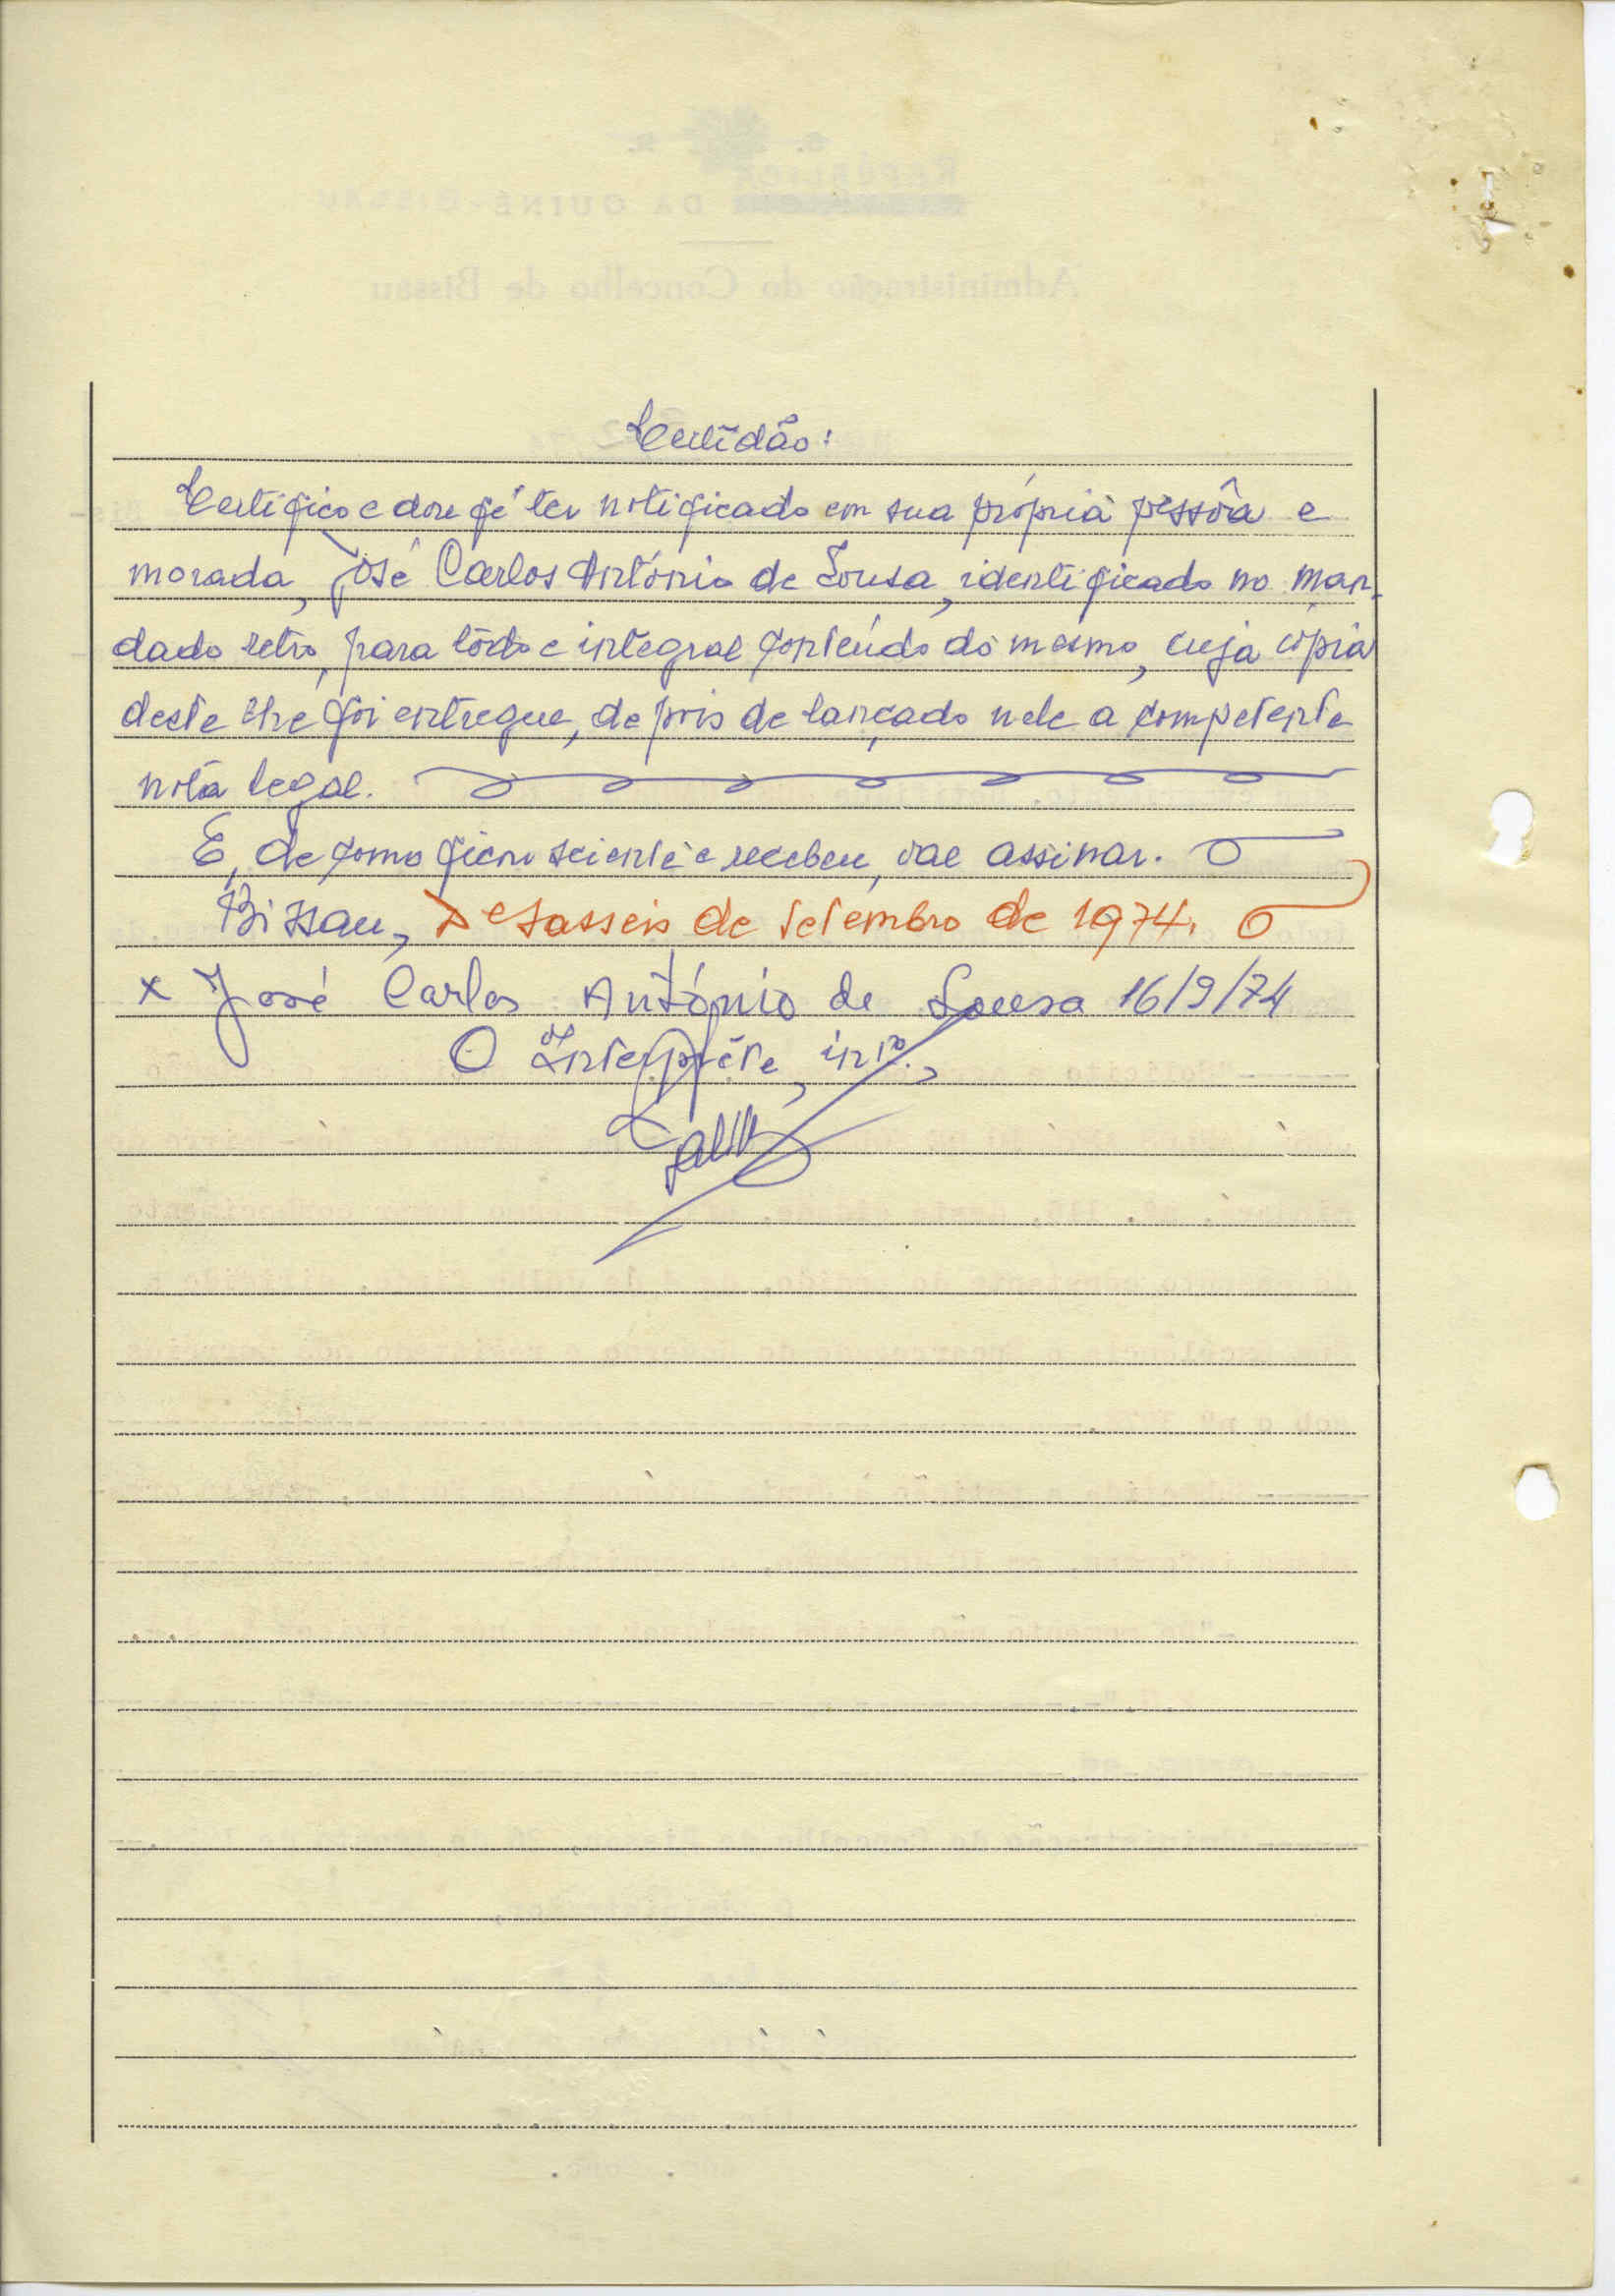 Certidão:
Certifico e dou fé ter notificado em sua própria pessôa e
morada, José Carlos António de Sousa, identificado no man-
dado retro, para tôdo e integral conteúdo do mesmo, cuja cópia
deste lhe foi entregue, depois de lançado nele a competente
nota legal.
E, de como ficou sciente e recebeu, vae assinar.
Bissau, Desasseis de Setembro de 1974.
x José Carlos António de Sousa 16/9/74
O Intérpréte, inrº.,